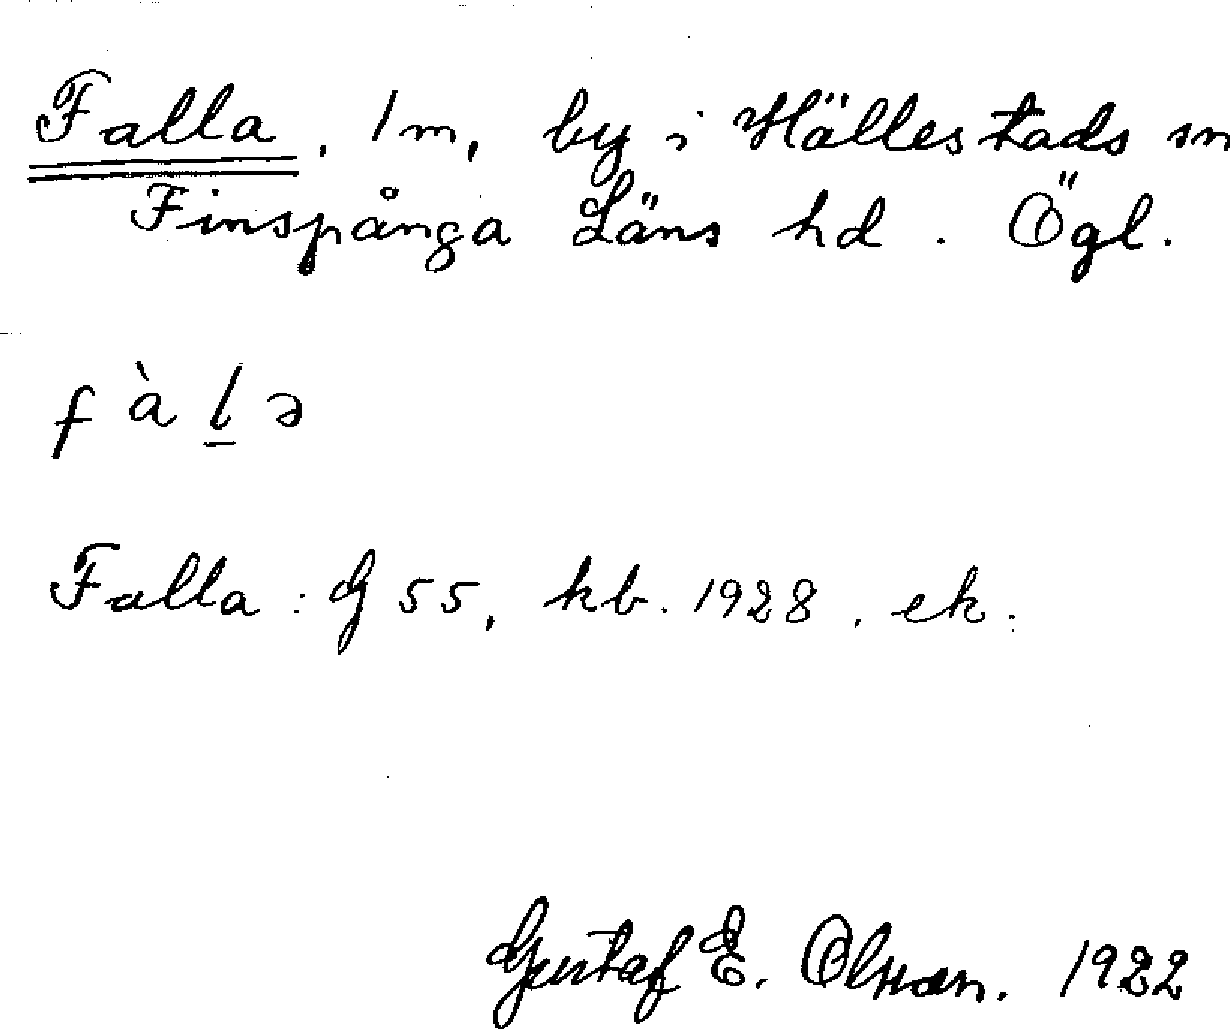 Falla, 1 m, by i Hällestads sn
Finspånga Läns hd. Ögl.
fàḻə
Falla: G 55, kb. 1928. ek.
Gustaf E. Olsson. 1922